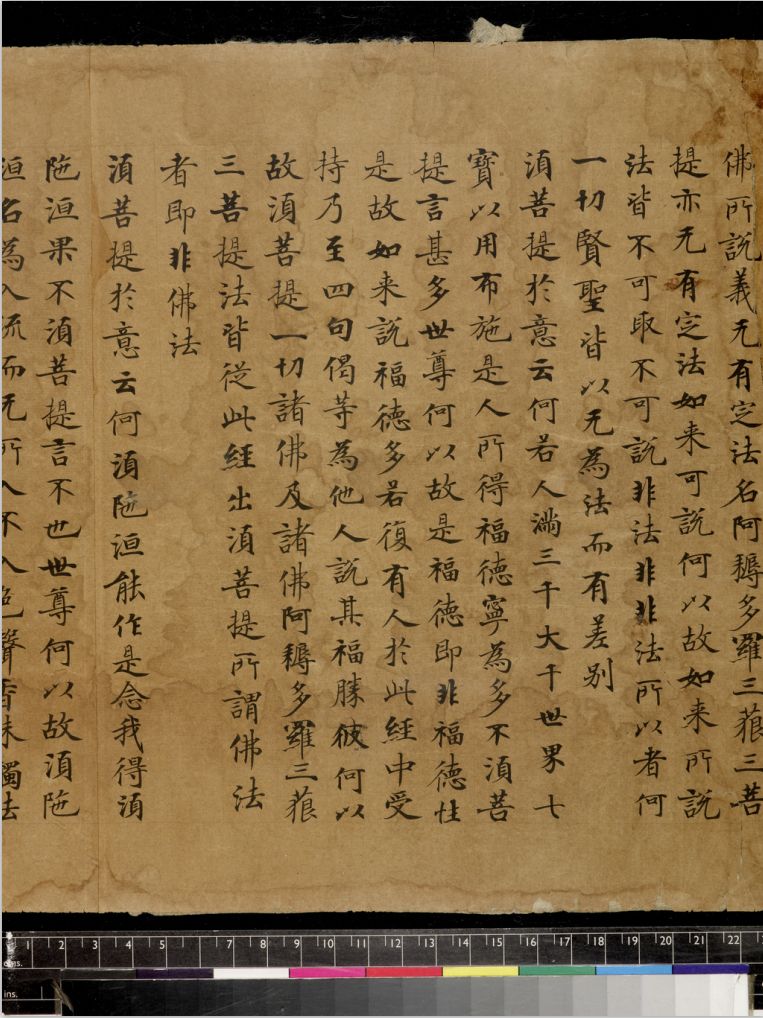 佛所說義无有定法名阿耨多羅三藐三菩
提亦无有定法如来可說何以故如来所說
法皆不可取不可說非法非非法所以者何
一切賢聖皆以无為法而有差别
須菩提於意云何若人滿三千大千世界七
寶以用布施是人所得福德寧為多不須菩
提言甚多世尊何以故是福德即非福德性
是故如来說福德多若復有人於此經中受
持乃至四句偈等為他人說其福勝彼何以
故須菩提一切諸佛及諸佛阿耨多羅三藐
三菩提法皆從此經出須菩提所謂佛法
者即非佛法
須菩提於意云何須陁洹能作是念我得須
陁洹果不須菩提言不也世尊何以故須陁
洹名為入流而无所入不入色聲香味觸法
1 2 3 4 5 6 7 8 9 10 11 12 13 14 15 16 17 18 19 20 21 22
cms.
ins. 1